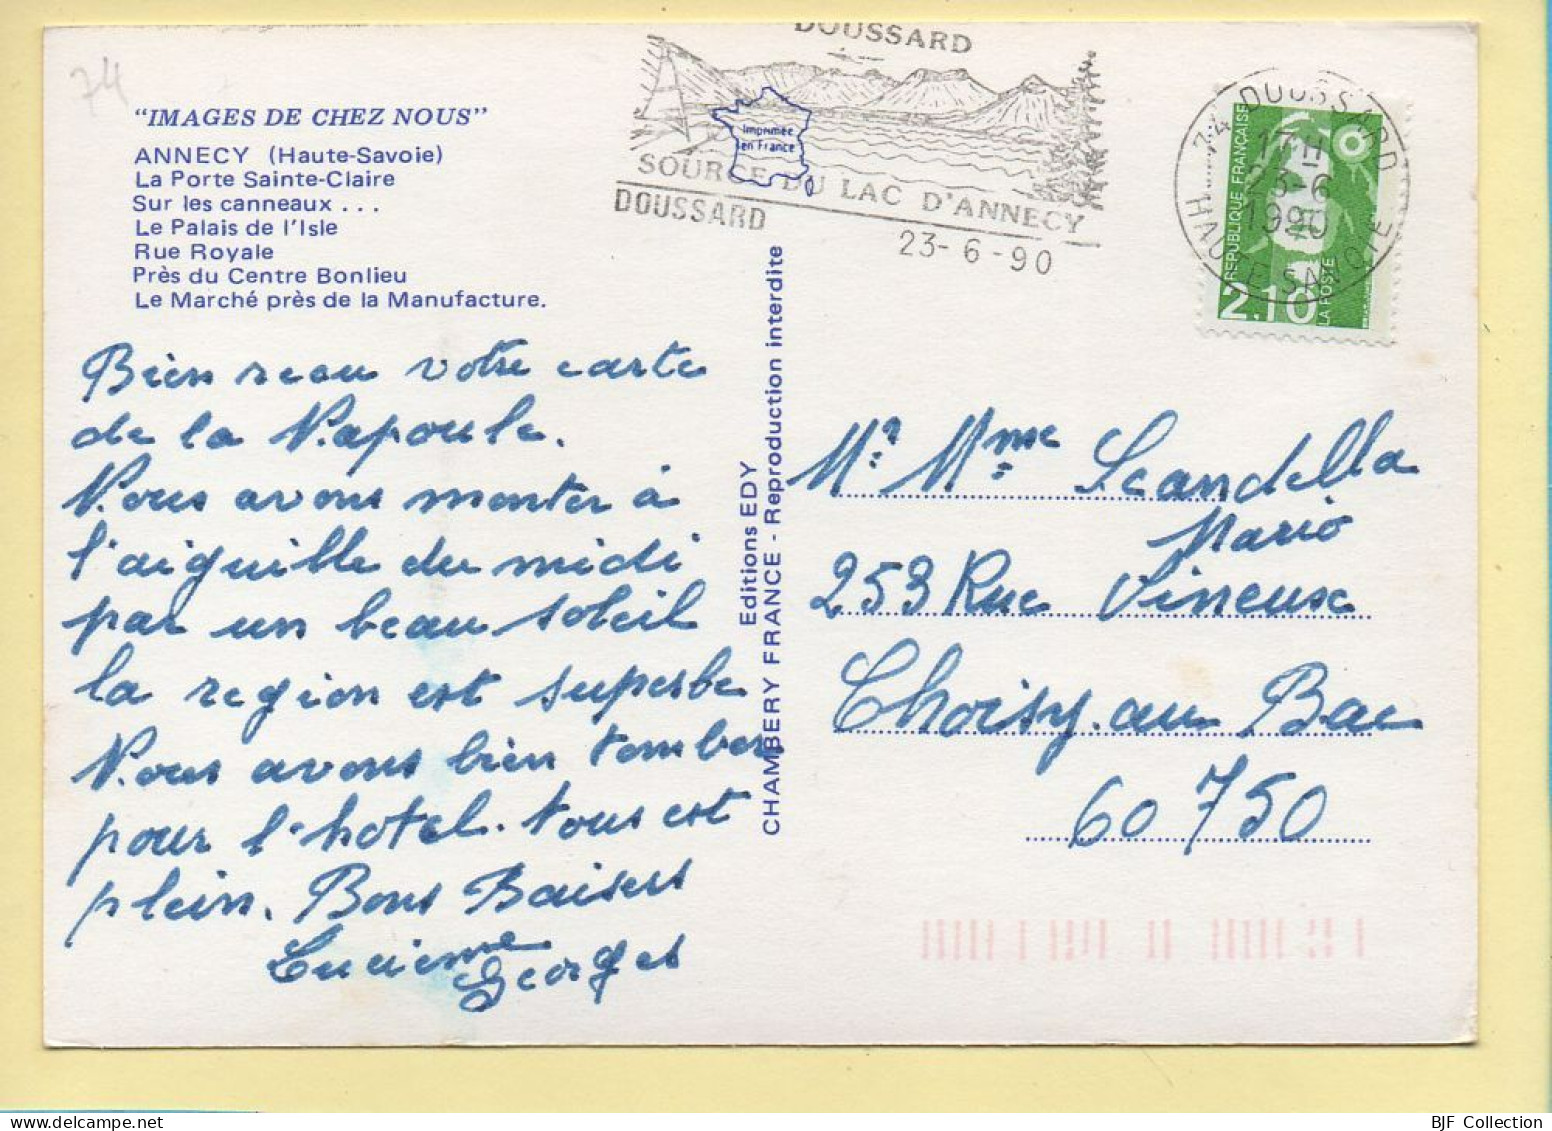 74
"IMAGES DE CHEZ NOUS"
ANNECY (Haute-Savoie)
La Porte Sainte-Claire
Sur les canneaux . . .
Le Palais de l'Isle
Rue Royale
Près du Centre Bonlieu
Le Marché près de la Manufacture.
Bien reçu votre carte
de la Napoule.
Nous avons monter à
l'aiguille du midi
par un beau soleil
la region est superbe
Nous avons bien tomber
pour l'hotel. tous est
plein. Bons Baisers
Lucienne
Georges
Editions EDY
CHAMBERY FRANCE - Reproduction interdite
DOUSSARD
Imprimée
en France
SOURCE DU LAC D'ANNECY
DOUSSARD
23-6-90
74 DOUSSARD
17H
23-6
1990
HAUTE SAVOIE
REPUBLIQUE FRANÇAISE
2.10
LA POSTE
Mr Mme Scandella
Mario
253 Rue Vineuse
Choisy. au Bac
60750
BJF Collection